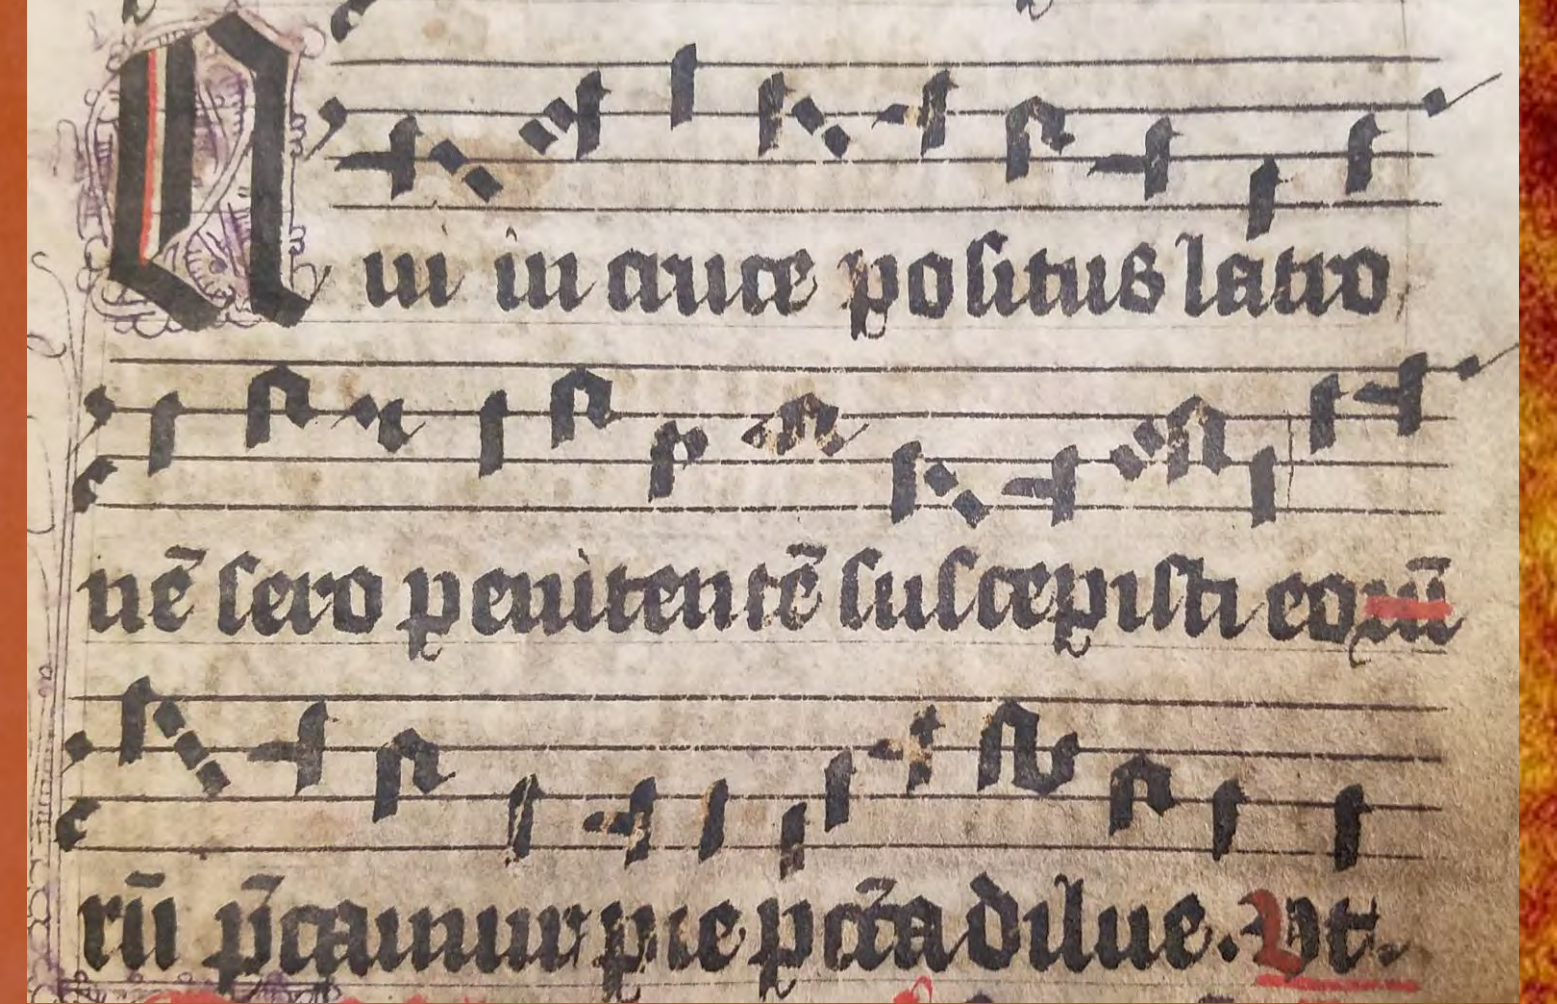 Qui in cruce positus latro
nē sero penitentē suscepisti eoꝝū
rū p̄camur pie pctā dilue. Vt.